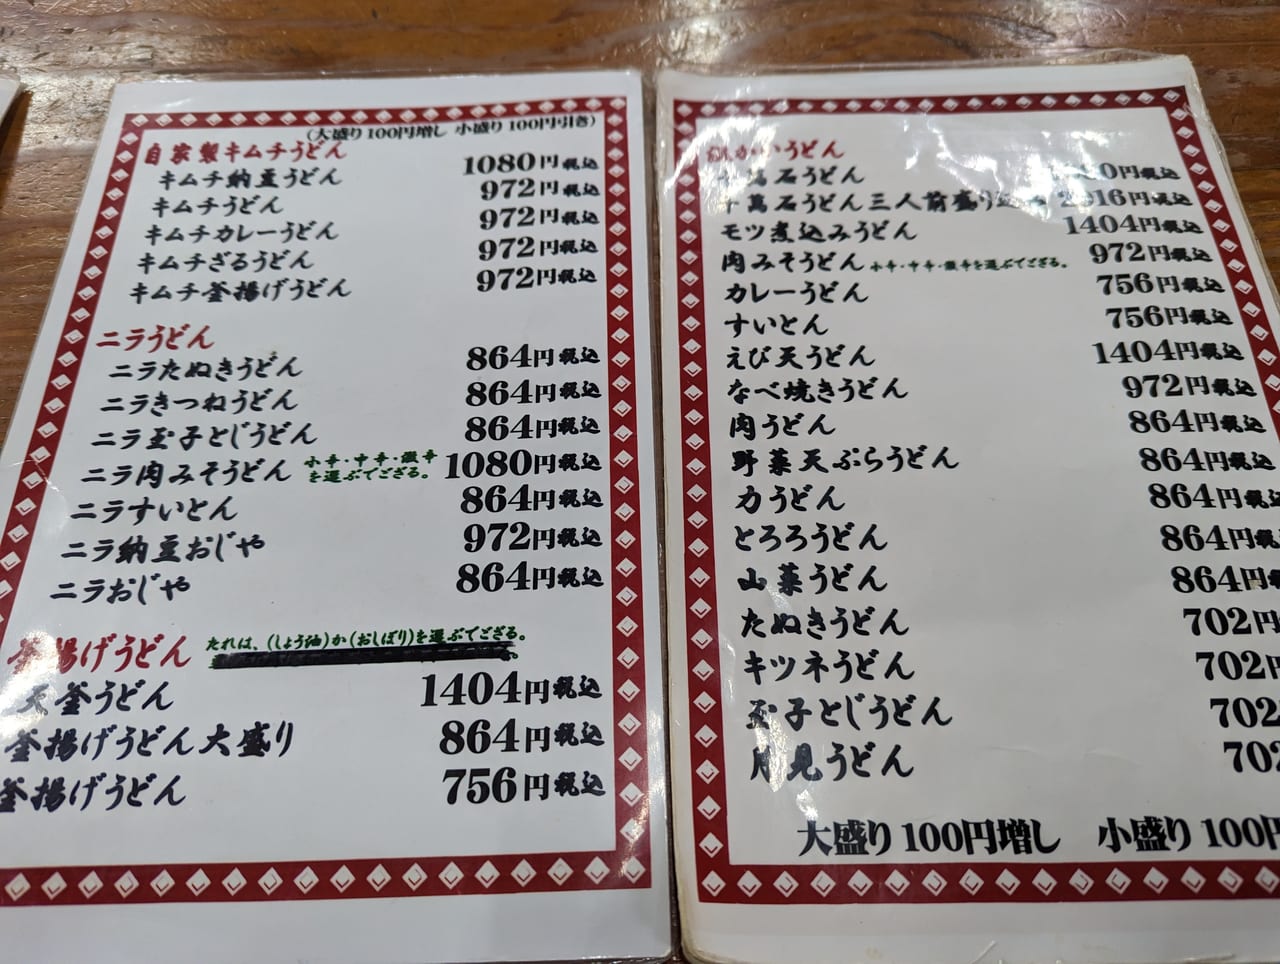 (大盛り100円増し 小盛り100円引き)
自家製キムチうどん
キムチ納豆うどん 1080円税込
キムチうどん 972円税込
キムチカレーうどん 972円税込
キムチざるうどん 972円税込
キムチ釜揚げうどん 972円税込
ニラうどん
ニラたぬきうどん 864円税込
ニラきつねうどん 864円税込
ニラ玉子とじうどん 864円税込
ニラ肉みそうどん 小辛・中辛・激辛を選ぶでござる。 1080円税込
ニラすいとん 864円税込
ニラ納豆おじや 972円税込
ニラおじや 864円税込
釜揚げうどん たれは、(しょう油)か(おしぼり)を選ぶでござる。
天釜うどん 1404円税込
釜揚げうどん大盛り 864円税込
釜揚げうどん 756円税込
うどん
萬石うどん 円税込
十萬石うどん三人前盛り 円税込
モツ煮込みうどん 1404円税込
肉みそうどん 小辛・中辛・激辛を選ぶでござる。 972円税込
カレーうどん 756円税込
すいとん 756円税込
えび天うどん 1404円税込
なべ焼きうどん 972円税込
肉うどん 864円税込
野菜天ぷらうどん 864円税込
力うどん 864円税込
とろろうどん 864円税
山菜うどん 864円税
たぬきうどん 702円
キツネうどん 702円
玉子とじうどん 702
月見うどん 702
大盛り100円増し 小盛り100円